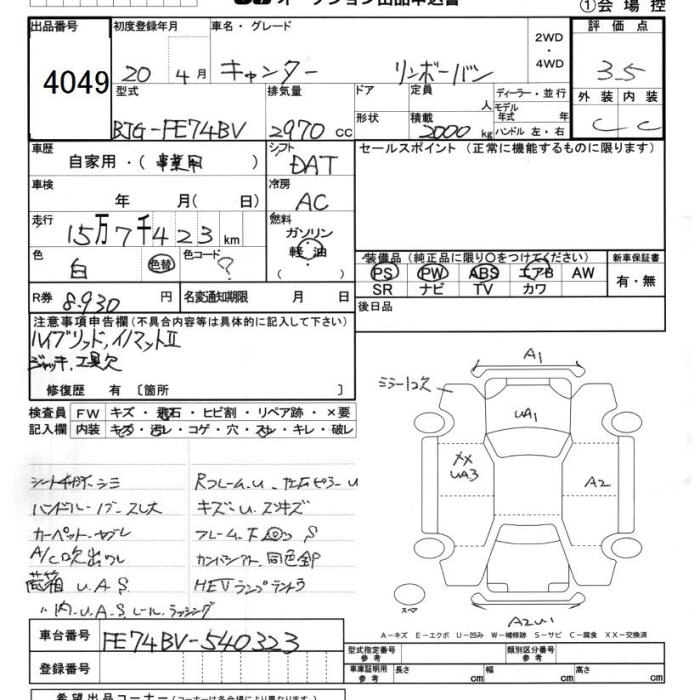 オークション出品申込書
①会場控
出品番号 初度登録年月 車名・グレード 2WD 評価点
4049 20 4月 キャンター リンボーバン ・4WD 3.5
型式 排気量 ドア 定員 ディーラー・並行 外装 内装
人 モデル年式 年
形状 積載 ハンドル 左・右
BJG-FE74BV 2970cc 2000kg C C
車歴 シフト セールスポイント(正常に機能するものに限ります)
自家用・(事業用) DAT
車検 冷房
年 月(日) AC
走行 燃料
15万7千423km ガソリン
軽油
( )
色 色コード 装備品(純正品に限り〇をつけてください) 新車保証書
白 色替 ? PS PW ABS エアB AW 有・無
SR ナビ TV カワ
R券 8,930円 名変通知期限 月 日 後日品
注意事項申告欄(不具合内容等は具体的に記入して下さい)
ハイブリッド,イノマットⅡ
ジャッキ,工具欠
修復歴 有〔箇所 〕
検査員 FW キズ・飛石・ヒビ割・リペア跡・×要
記入欄 内装 キズ・汚レ・コゲ・穴・スレ・キレ・破レ
A1
ミラー1コ欠
UA1
XX
UA3
A2
スペア
A2U1
シートチギレ・シミ Rフレームu. 左右ピラーu
ハンドル・ノブ・スレ大 キズ・u. スリキズ
カーペット・ヤブレ フレーム下 S
A/C吹出ワレ 同色
荷箱 u.A.S HEVランプテントラ
〃内.u.A.S レール.ラッシング
A-キズ E-エクボ U-凹み W-補修跡 S-サビ C-腐食 XX-交換済
車台番号 FE74BV-540323
型式指定番号 参考 類別区分番号 参考
登録番号 車庫証明用 参考 長さ cm 幅 cm 高さ cm
希望出品コーナー(コーナーは各会場により異なります)